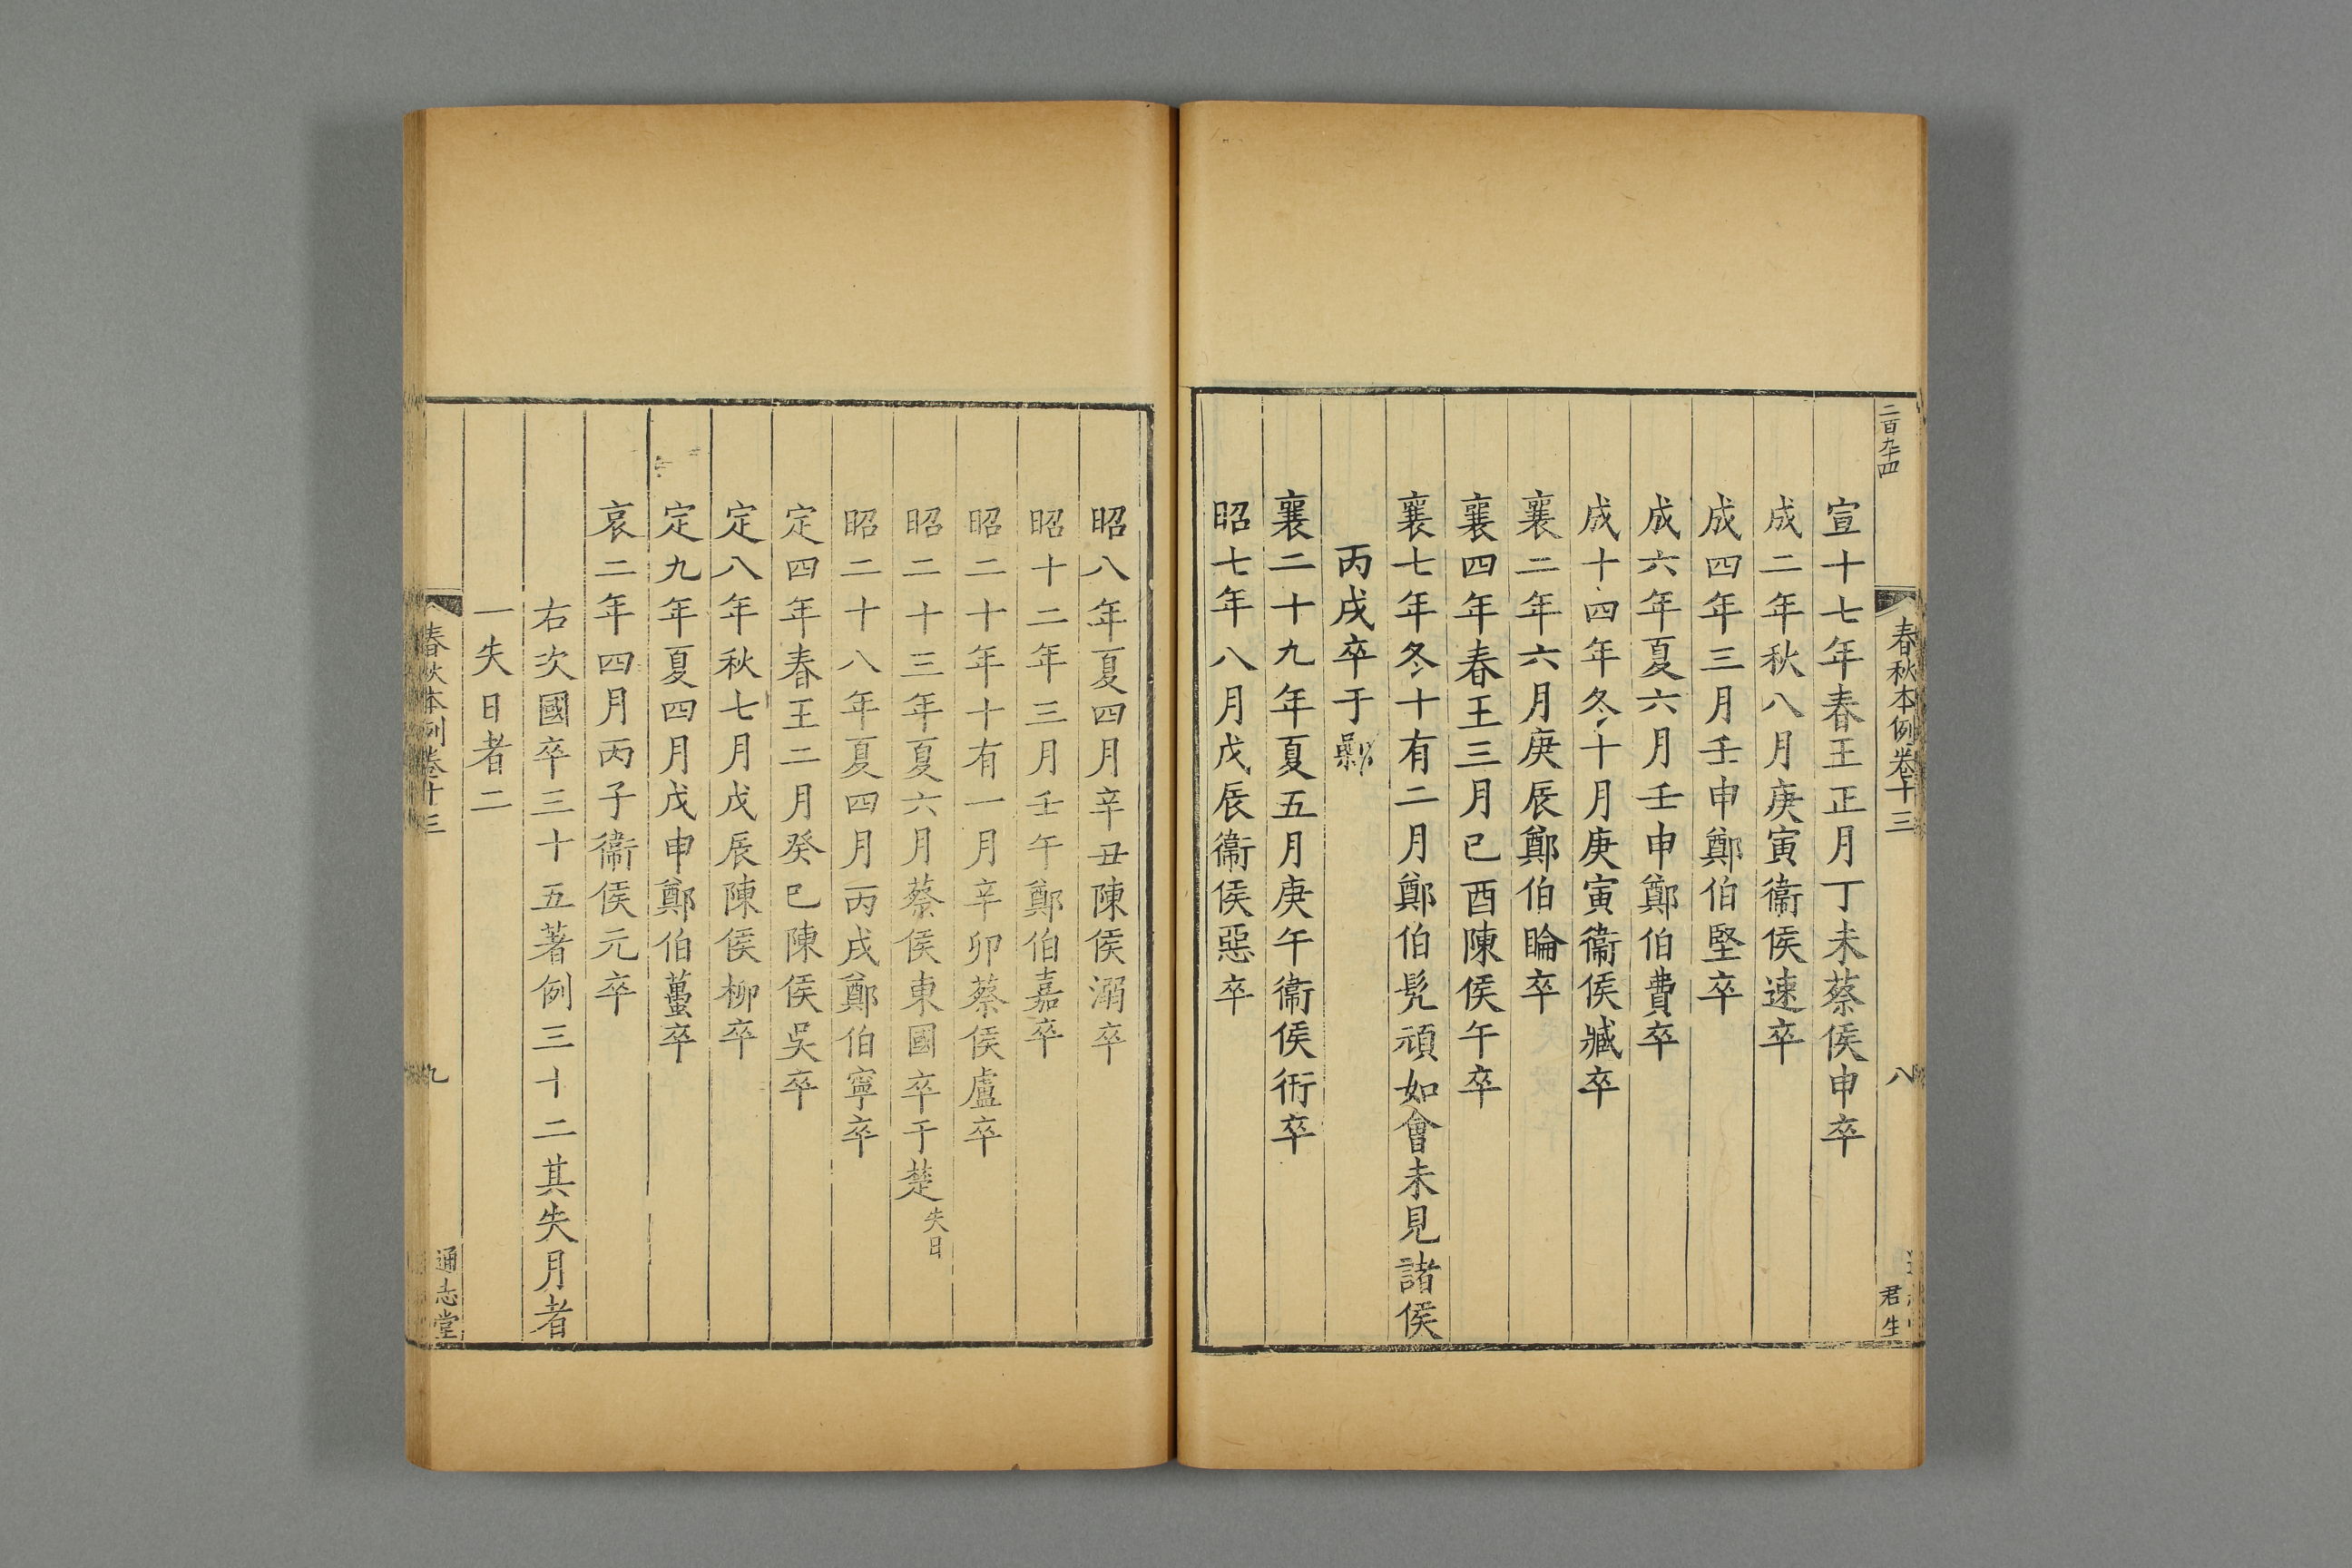 二百九十四
春秋本例卷十三
八
君生
宣十七年春王正月丁未蔡侯申卒
成二年秋八月庚寅衞侯速卒
成四年三月壬申鄭伯堅卒
成六年夏六月壬申鄭伯費卒
成十四年冬十月庚寅衞侯臧卒
襄二年六月庚辰鄭伯睔卒
襄四年春王三月己酉陳侯午卒
襄七年冬十有二月鄭伯髠頑如會未見諸侯
丙戌卒于鄵
襄二十九年夏五月庚午衞侯衎卒
昭七年八月戊辰衞侯惡卒
昭八年夏四月辛丑陳侯溺卒
昭十二年三月壬午鄭伯嘉卒
昭二十年十有一月辛卯蔡侯盧卒
昭二十三年夏六月蔡侯東國卒于楚失日
昭二十八年夏四月丙戌鄭伯寧卒
定四年春王二月癸巳陳侯吳卒
定八年秋七月戊辰陳侯柳卒
定九年夏四月戊申鄭伯蠆卒
哀二年四月丙子衞侯元卒
右次國卒三十五著例三十二其失月者
一失日者二
春秋本例卷十三
九
通志堂